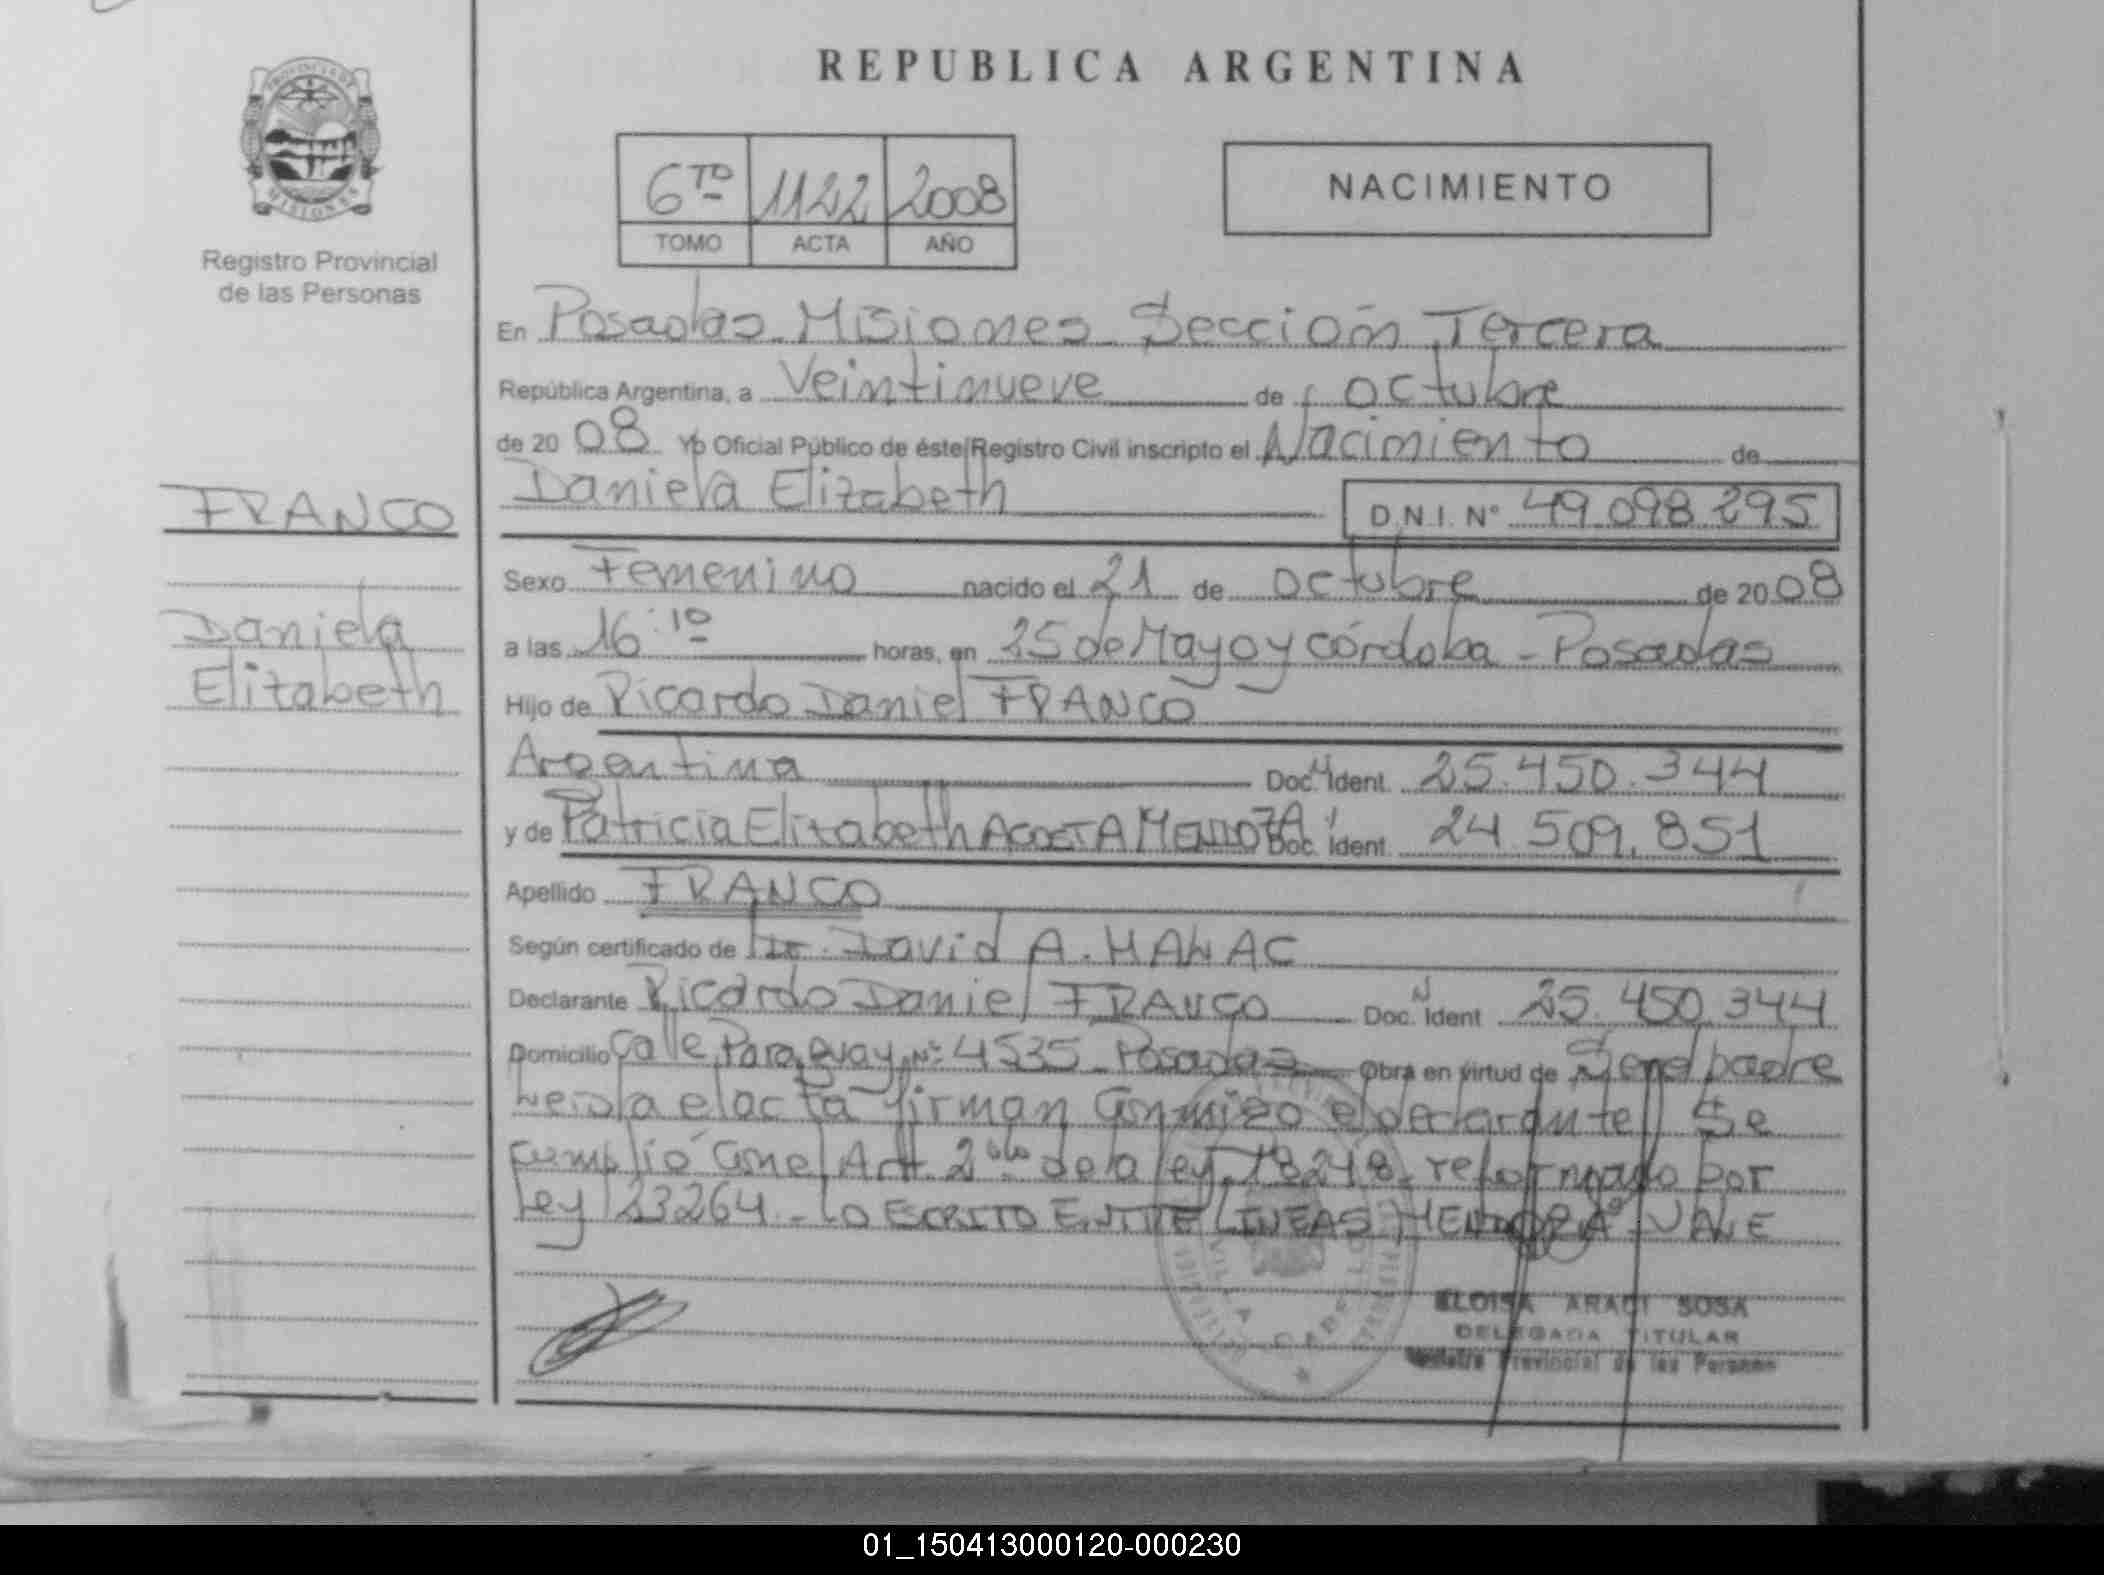 REPUBLICA ARGENTINA
PROVINCIA DE
MISIONES
Registro Provincial
de las Personas
6TO 1122 2008
TOMO ACTA AÑO
NACIMIENTO
En Posadas - Misiones - Sección Tercera
República Argentina, a Veintinueve de octubre
de 20 08 Yo Oficial Público de éste Registro Civil inscripto el Nacimiento de
FRANCO
Daniela Elizabeth D.N.I. N° 49.098.295
Sexo Femenino nacido el 21 de octubre de 20 08
Daniela
a las 16:10 horas, en 25 de Mayo y córdoba - Posadas
Elizabeth
Hijo de Ricardo Daniel FRANCO
Argentina Doc. Ident. 25.450.344
y de Patricia Elizabeth ACOSTA MENDOZA Doc. Ident. 24.509.851
Apellido FRANCO
Según certificado de Dr. David A.
Declarante Ricardo Daniel FRANCO Doc. Ident 25.450.344
Domicilio Calle Paraguay N° 4535 - Posadas Obra en virtud de Ser el padre
Leida el acta firman conmigo el declarante Se
cumplió con el Art. 2do de la ley 18248 reformado por
Ley 23264 - LO ESCRITO ENTRE LINEAS MENDOZA VALE
ELOISA ARACI SOSA
DELEGADA TITULAR
Registro Provincial de las Personas
01_150413000120-000230